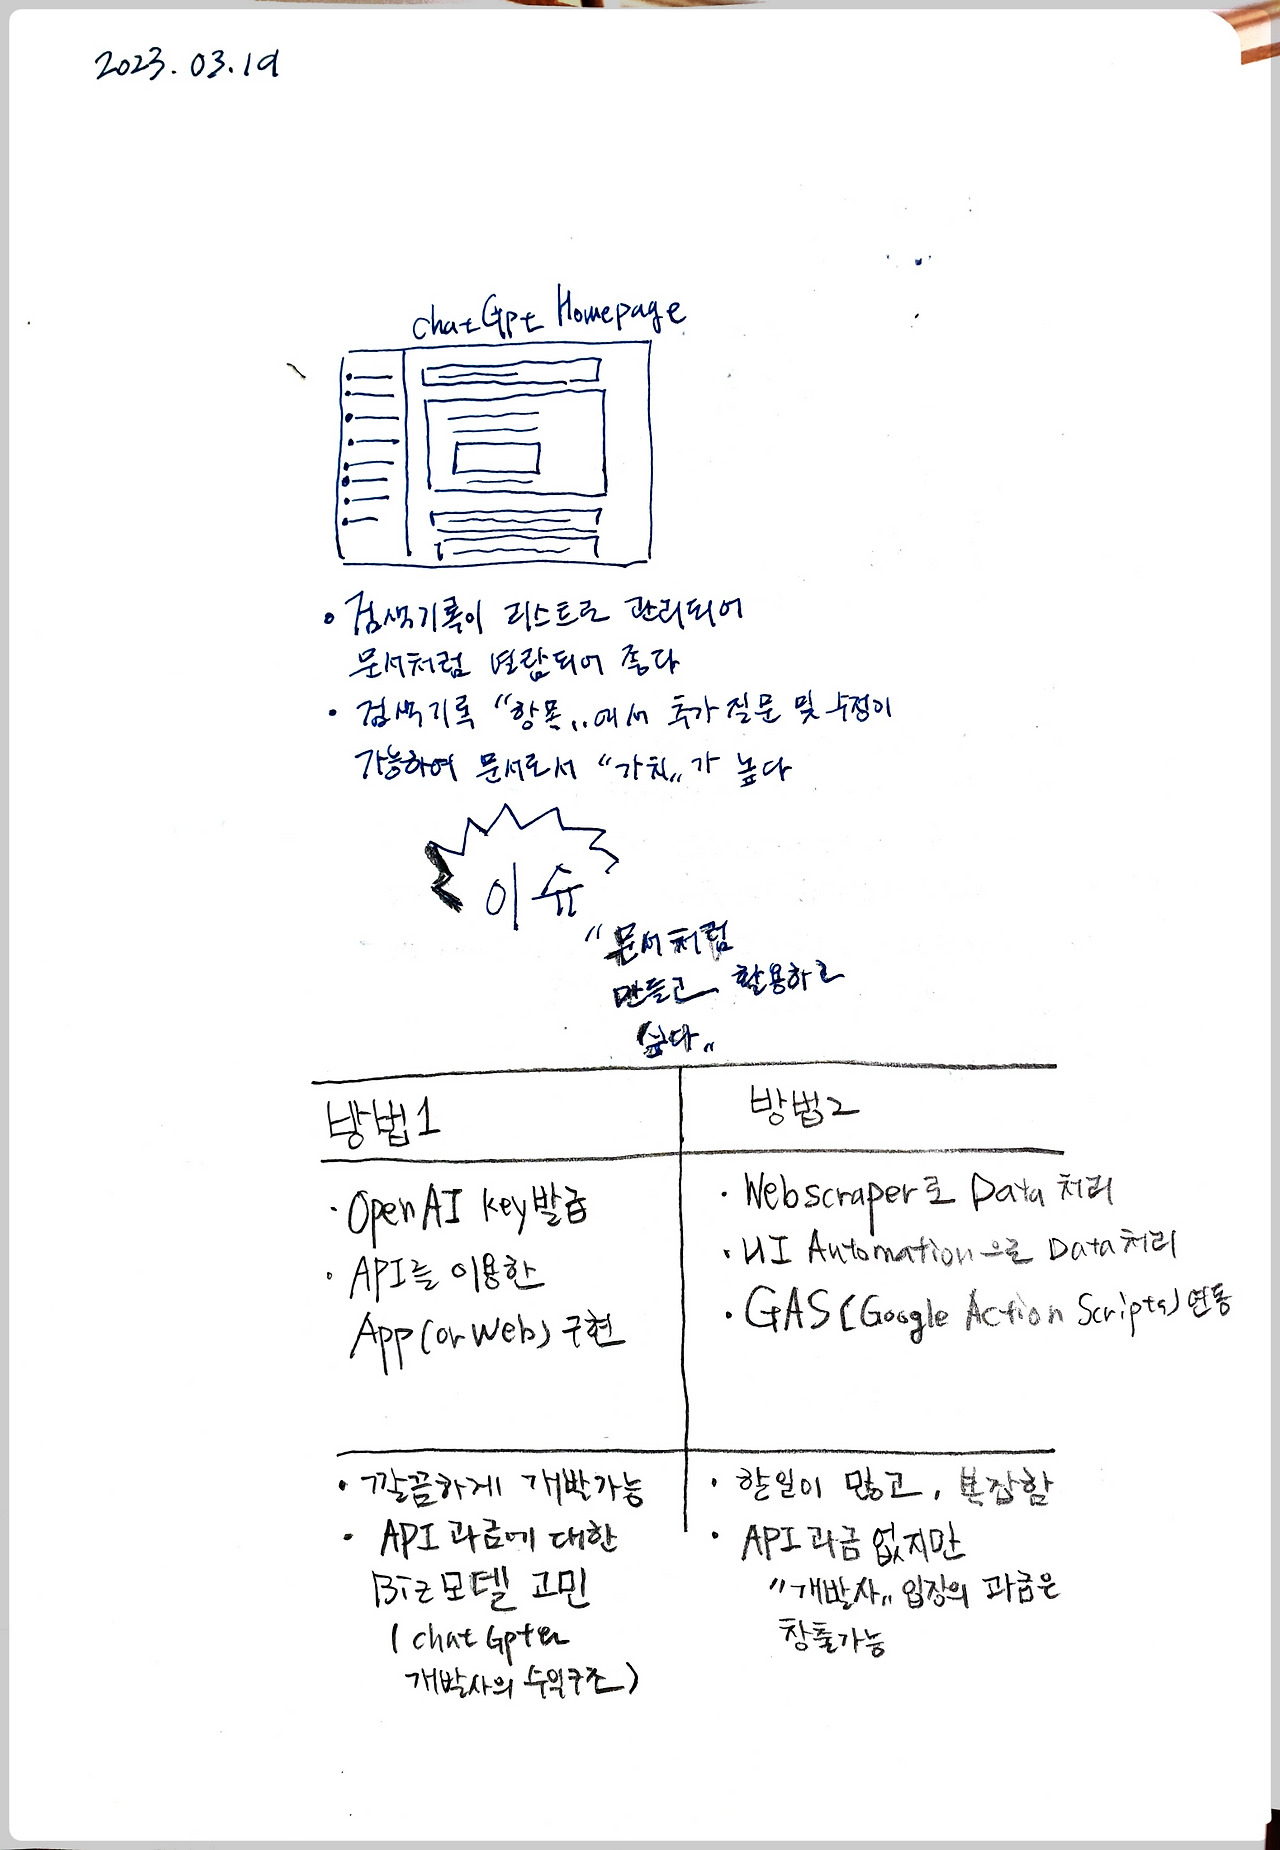 2023.03.19
chatGpt Homepage
• 검색기록이 리스트로 관리되어
문서처럼 열람되어 좋다
• 검색기록 "항목"에서 추가 질문 및 수정이
가능하여 문서로서 "가치"가 높다
이슈
"문서처럼
만들고 활용하고
싶다"
방법1
방법2
· OpenAI key발급
· API를 이용한
App(or Web) 구현
· Webscraper로 Data 처리
· UI Automation으로 Data처리
· GAS (Google Action Scripts) 연동
• 깔끔하게 개발가능
• API 과금에 대한
Biz모델 고민
( chatGpt와
개발사의 수익구조 )
• 할일이 많고, 복잡함
• API 과금 없지만
"개발사" 입장의 과금은
창출가능